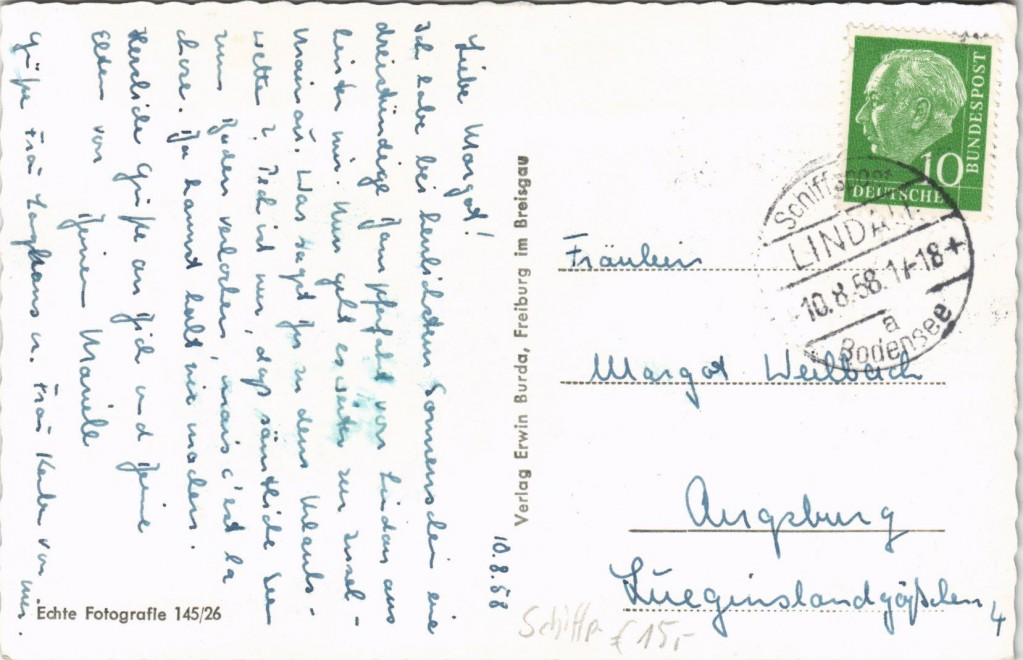 Liebe Margot!
Ich habe bei herrlichstem Sonnenschein eine
dreistündige Dampferfahrt von Lindau aus
hinter mir. Nun geht es weiter zur Insel
Mainau. Was sagst Du zu dem Urlaubs-
wetter? Pech ist nur, daß sämtliche
zum Baden verlocken, mais c'est la
chose. Da kannst halt nix machen.
Herzliche Grüße an Dich und Deine
Eltern von
Deiner
Grüße Frau u. Frau von mir.
10.8.58
Echte Fotografie 145/26
Verlag Erwin Burda, Freiburg im Breisgau
DEUTSCHE BUNDESPOST
10
Schiffspost
LINDAU
10.8.58.17-18+
a
Bodensee
Fräulein
Margot Weilbach
Augsburg
Lueginslandgäßchen 4
Schiffp. € 15,-